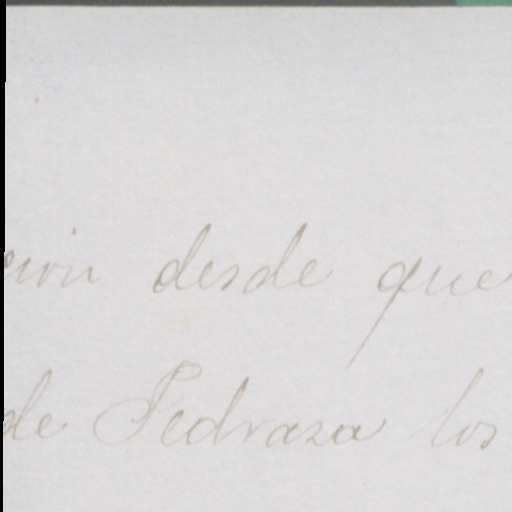 cion desde que
de Pedraza los